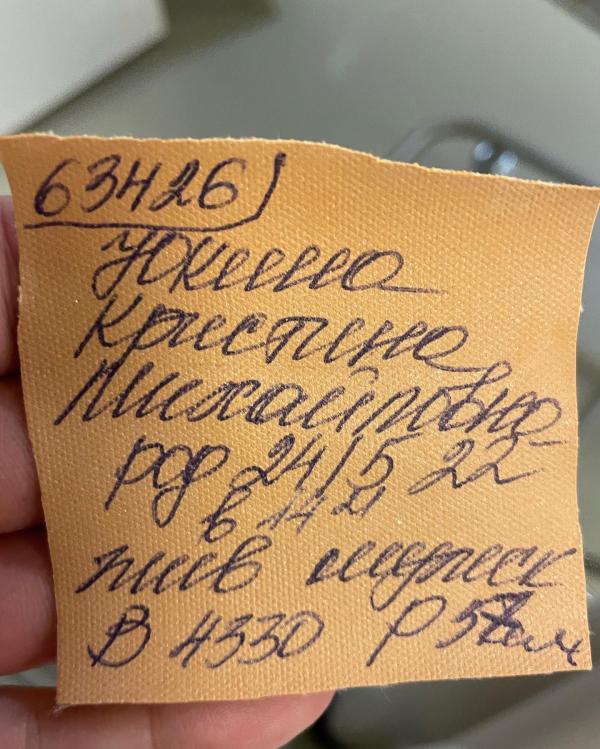 63426
Юкина
Кристина
Михайловна
род 24/5 22
в 14 ч
жив мужск
В 4330 Р 57 см